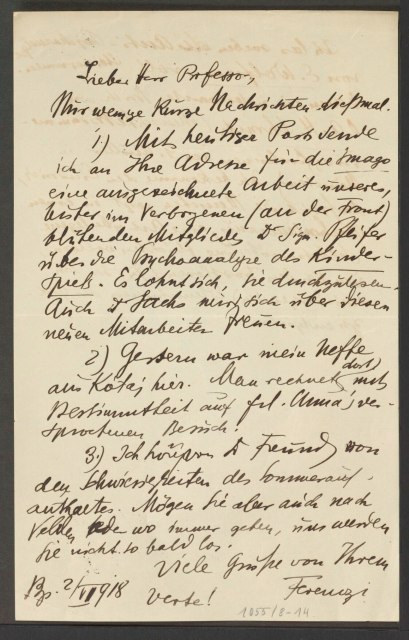 Lieber Herr Professor,
Nur wenige kurze Nachrichten diesmal.
1) Mit heutiger Post sende
ich an Ihre Adresse für die Imago
eine ausgezeichnete Arbeit unseres,
bisher im Verborgenen (an der Front)
blühenden Mitgliedes Dr Sigm. Pfeifer
über die Psychoanalyse des Kinder-
spiels. Es lohnt sich, sie durchzulesen.
Auch Dr Sachs wird sich über diesen
neuen Mitarbeiter freuen.
2) Gestern war mein Neffe
aus Kótaj hier. Man rechnet dort mit
Bestimmtheit auf Frl. Anna's ver-
sprochenen Besuch.
3.) Ich höre von Dr Freund von
den Schwierigkeiten des Sommerauf-
enthaltes. Mögen Sie aber auch nach
Velden oder wo immer gehen, uns werden
Sie nicht so bald los.
Viele Grüße von Ihrem
Ferenczi
Bp. 2/VI 918
verte!
1055/8-14